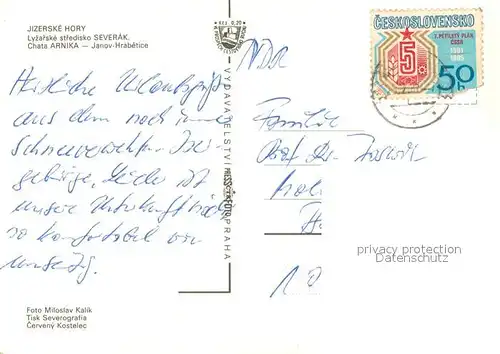 JIZERSKÉ HORY
Lyžařské středisko SEVERÁK.
Chata ARNIKA — Janov-Hrabětice
Herzliche Urlaubsgrüße
aus dem noch immer
schneeverwehten Iser-
gebirge. Leider ist
unsere Unterkunft nicht
so komfortabel wie
Foto Miloslav Kalík
Tisk Severografia
Červený Kostelec
VYDAVATELSTVÍ PRAHA
Kčs 0,20
ČESKOSLOVENSKO
7. PĚTILETÝ PLÁN
ČSSR
1981
1985
5
50h
NDR
Familie
Prof. Dr.
privacy protection
Datenschutz